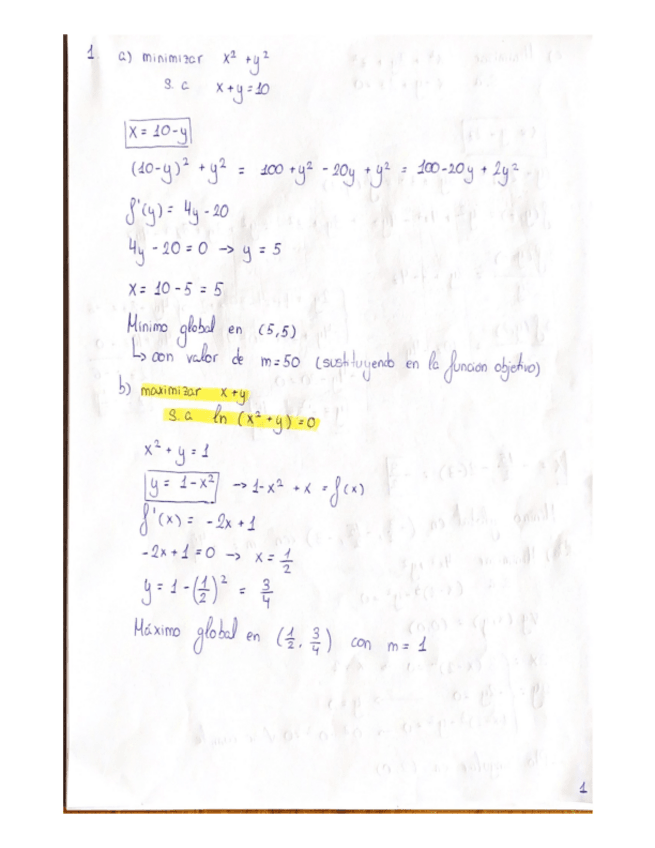 1. a) minimizar x² + y²
s.a x + y = 10
x = 10-y
(10-y)² + y² = 100 + y² - 20y + y² = 100-20y + 2y²
f'(y) = 4y - 20
4y - 20 = 0 → y = 5
x = 10 - 5 = 5
Mínimo global en (5,5)
↳ con valor de m=50 (sustituyendo en la función objetivo)
b) maximizar x+y
s.a ln (x² + y) = 0
x² + y = 1
y = 1-x² → 1-x² + x = f(x)
f'(x) = -2x + 1
-2x + 1 = 0 → x = 1/2
y = 1 - (1/2)² = 3/4
Máximo global en (1/2, 3/4) con m= 1
1